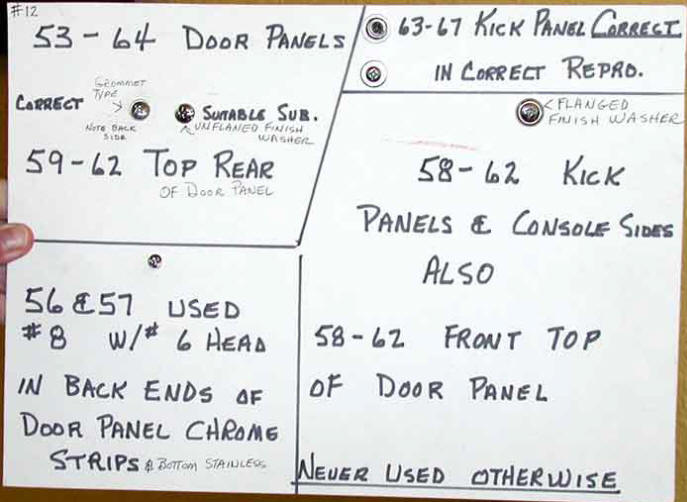 #12
53-64 DOOR PANELS
GROMMET
TYPE
CORRECT
NOTE BACK
SIDE
SUITABLE SUB.
UNFLANED FINISH
WASHER
59-62 TOP REAR
OF DOOR PANEL
63-67 KICK PANEL CORRECT
IN CORRECT REPRO.
FLANGED
FINISH WASHER
58-62 KICK
PANELS & CONSOLE SIDES
ALSO
58-62 FRONT TOP
OF DOOR PANEL
NEVER USED OTHERWISE
56 & 57 USED
#8 W/# 6 HEAD
IN BACK ENDS OF
DOOR PANEL CHROME
STRIPS & BOTTOM STAINLESS